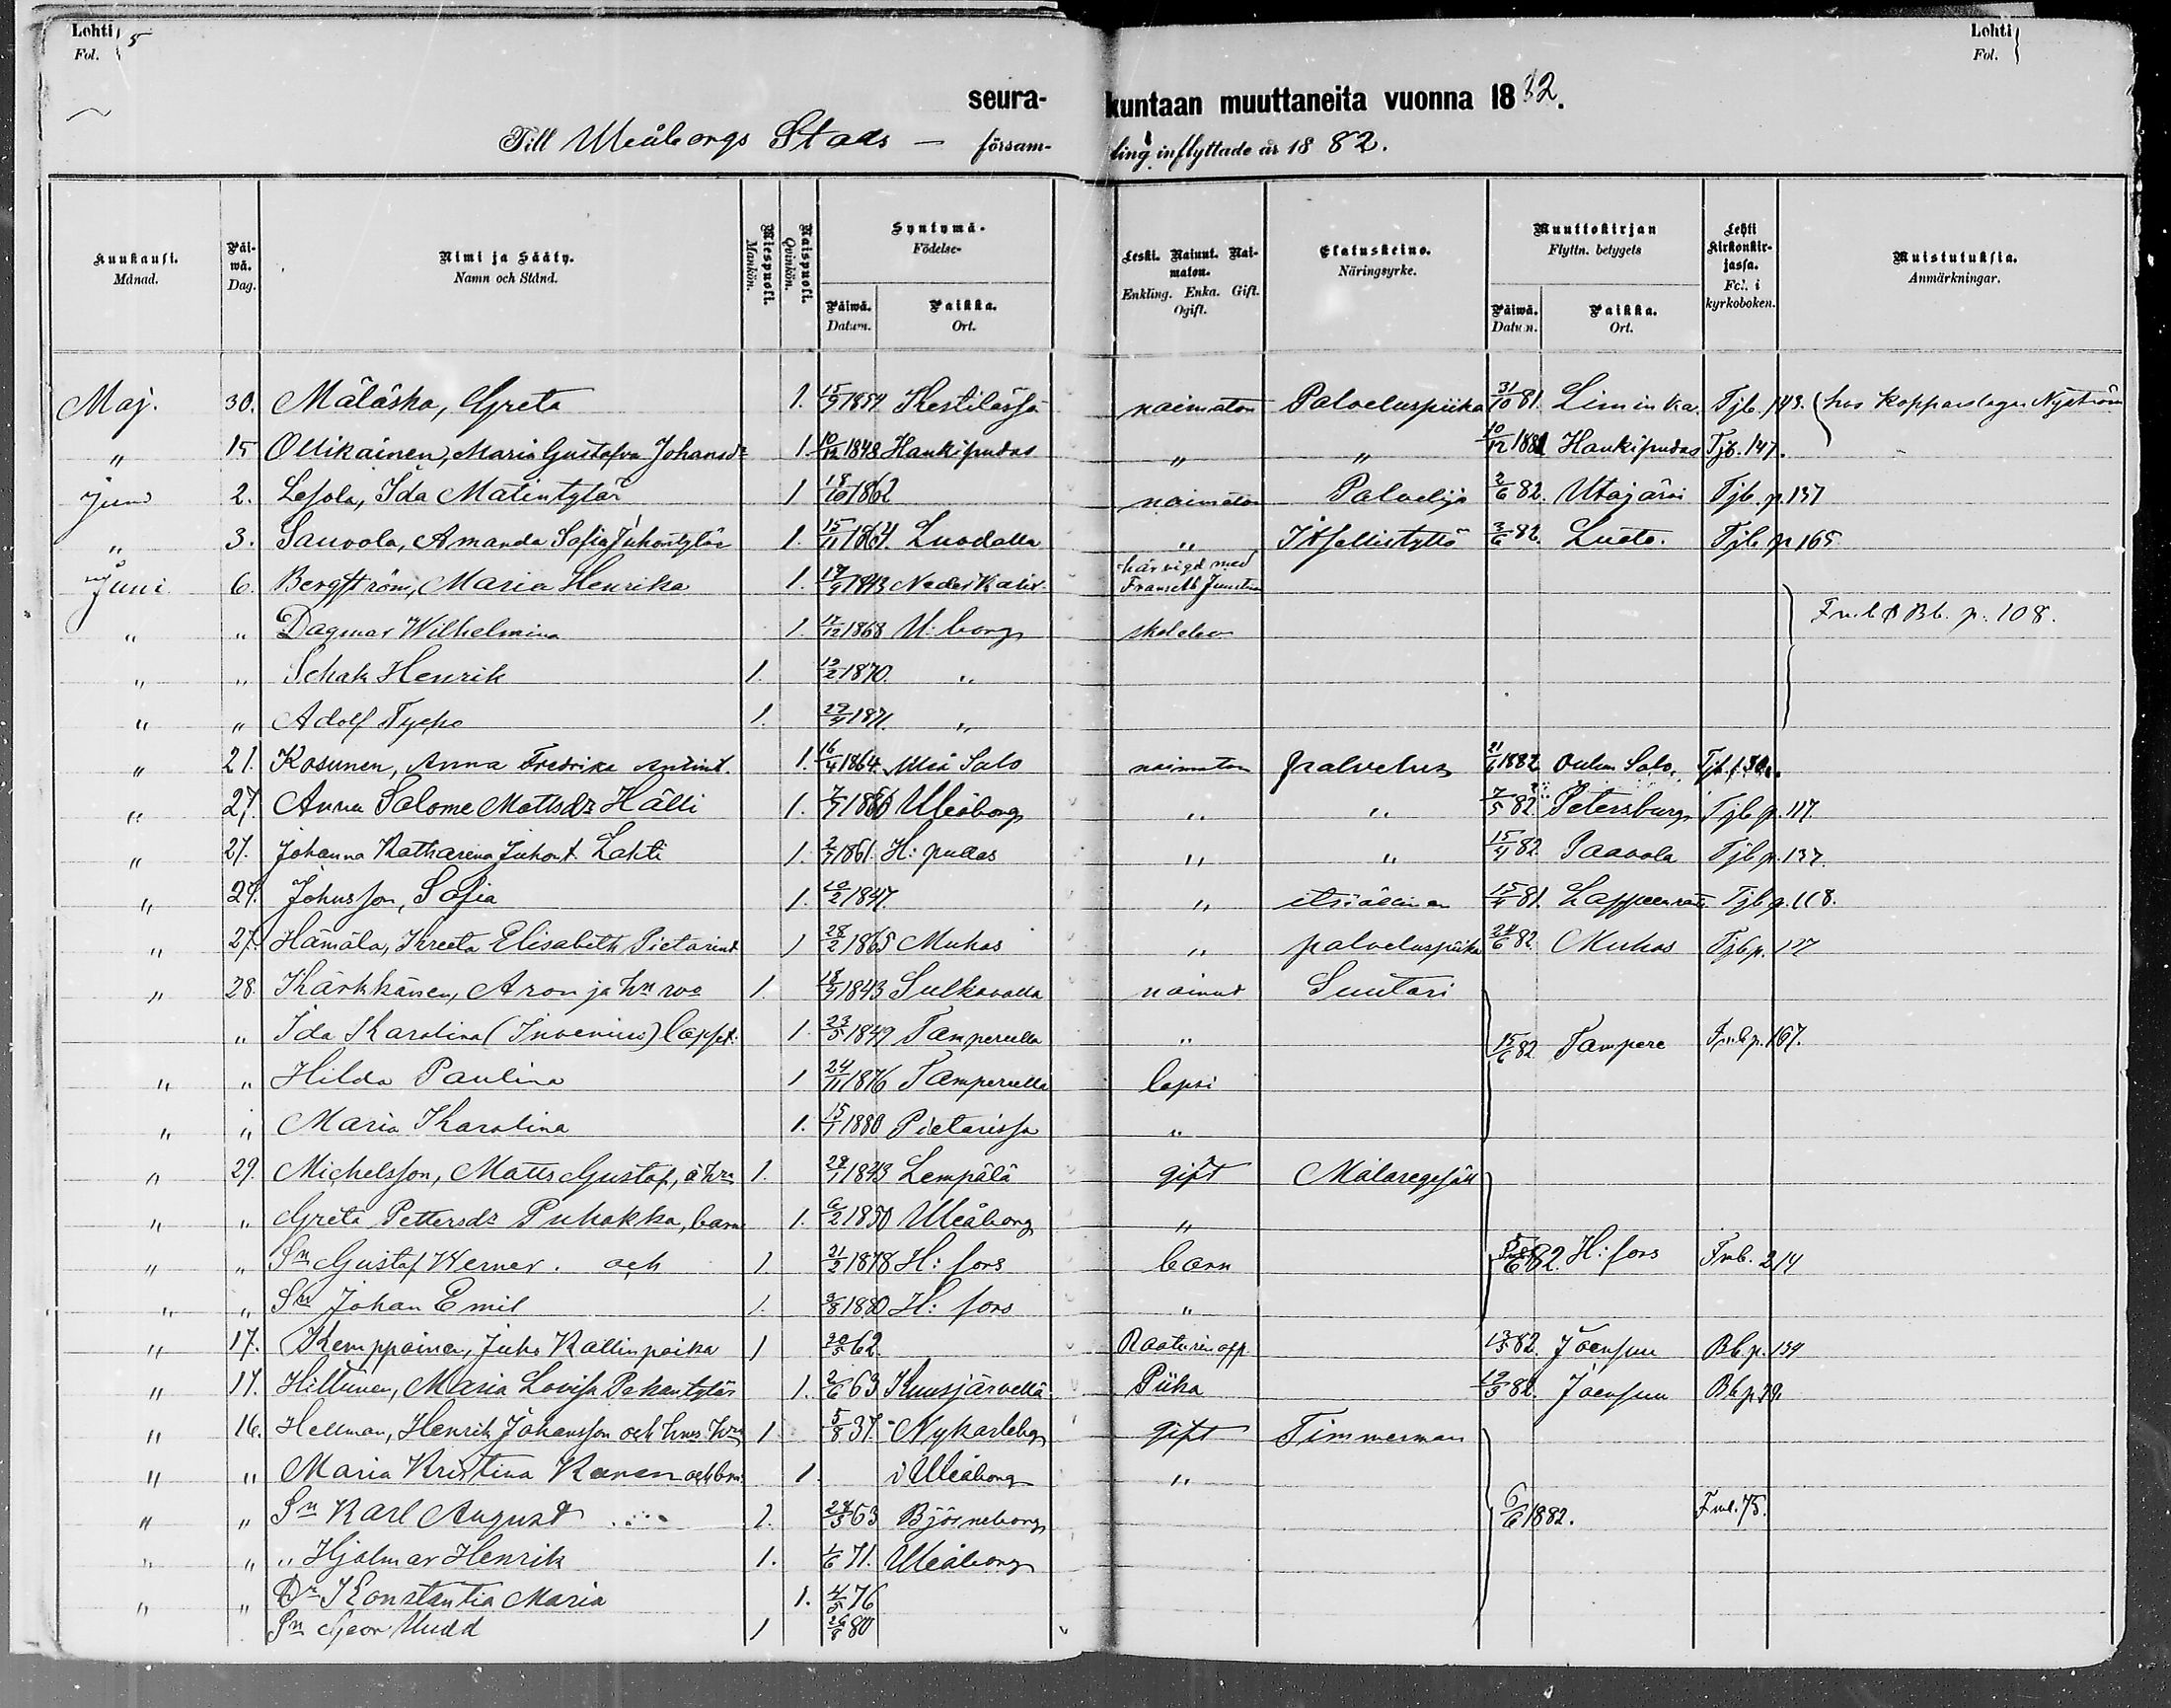 Lohti 5 Lohti
Fol. Fol.
seura- kuntaan muuttaneita vuonna 1882.
Till Uleåborgs Stads — försam- ling inflyttade år 1882.
Kuukausi. Månad. Päiwä. Dag. Nimi ja Sääty. Namn och Stånd. Miespuoli. Mankön. Naispuoli. Qvinkön. Syntymä- Födelse- Päiwä. Datum. Paikka. Ort. Leski. Nainut. Naimaton. Enkling. Enka. Gift. Ogift. Elatuskeino. Näringsyrke. Muuttokirjan Flyttn. betygets Päiwä. Datum. Paikka. Ort. Lehti kirkonkirjassa. Fol. i kyrkoboken. Muistutuksia. Anmärkningar.
Maj. 30. Mäläskä, Greta 1. 15/9 1854 Kestilässä naimaton Palveluspiika 31/10 81. Liminka. Tjb. 143. (hos kopparslagar Nyström
" 15 Ollikainen, Maria Gustafva Johansdr 1 10/12 1848 Haukipudas " " 10/12 1881 Haukipudas Tjb. 147.
Juni 2. Lesola, Ida Matintytär 1 18/10 1862 naimaton Palvelija 2/6 82. Utajärvi Tjb. p. 137
" 3. Sauvola, Amanda Sofia Juhontytär 1. 15/11 1864. Luodolla " Itsellistyttö 3/6 82. Luoto. Tjb p 165.
Juni 6. Bergström, Maria Henrika 1. 17/9 1843 Nederkalix. här vigd med
" " Dagmar Wilhelmina 1. 17/12 1868 U:borg Fmb & Bb. p. 108.
" " Schak Henrik 1. 13/2 1870. "
" " Adolf Tycho 1. 29/4 1871. "
" 21. Kosunen, Anna Fredrika Antint. 1. 16/4 1864. Uleå Salo naimaton palvelus 21/6 1882 Oulun Salo.
" 27. Anna Salome Mattsdr Hälli 1. 7/7 1860 Uleåborg " " 7/5 82. Petersburg Tjb p. 117.
" 27. Johanna Katharina Juhont. Lahti 1. 2/7 1861. H:pudas " " 15/4 82. Paavola Tjb p. 137.
" 27. Johnsson, Sofia 1. 10/2 1847. " itsiällinen 15/4 81. Lappeenran. Tjb p. 118.
" 27. Hämälä, Kreeta Elisabeth Pietarint. 1 28/2 1865 Muhos " palveluspiika 24/6 82. Muhos Tjb p. 127
" 28. Kärkkäinen, Aron ja hn wo 1. 18/9 1843 Sulkavalla nainut Suutari
" Ida Karolina (Invenius) lapset. 1. 23/5 1849 Tampereella " 15/6 82 Tampere Fmb p. 167.
" " Hilda Paulina 1 24/11 1876 Tampereella lapsi
" " Maria Karolina 1. 15/1 1880 Pietarissa "
" 29. Michelsson, Matts Gustaf, å hu 1. 28/1 1843 Lempälä gift Målaregesäll
" " Greta Pettersdr Puhakka, barn 1. 6/2 1850 Uleåborg "
" " Sn Gustaf Werner. och 1. 21/2 1878 H:fors barn 82. H:fors Fmb. 214
" " Sn Johan Emil 1. 3/8 1880 H:fors "
" 17. Kemppainen, Juho Kallinpoika 1 30/5 62. 13/5 82. Joensuu Bb. p. 139
" 17. Hiltunen, Maria Lovisa Pekantytär 1. 2/6 63 Kuusjärvellä Piika 19/5 82. Joensuu Bb p.
" 16. Hellman, Henrik Johansson och hns hu 1. 5/8 37. Nykarleby gift Timmerman
" " Maria Kristina Kanen och brn. 1. i Uleåborg "
" " Sn Karl August 1. 27/3 63 Björneborg 6/6 1882. Fml. 75.
" " " Hjalmar Henrik 1. 1/6 71. Uleåborg
" " Dr Konstantia Maria 1. 4/5 76
Sn Geor Mudd 1 26/8 80